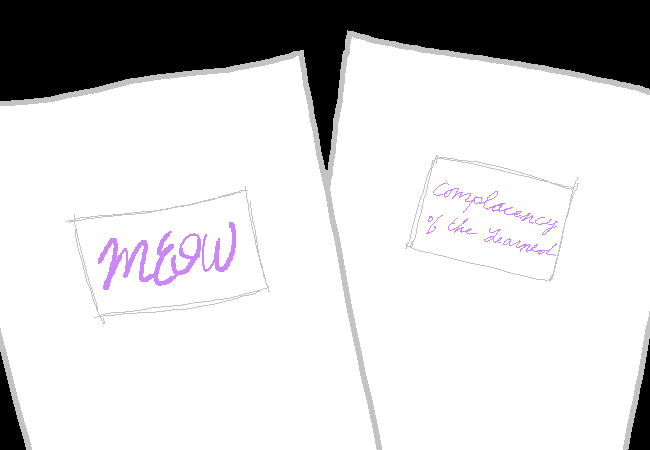 MEOW
Complacency
of the Learned